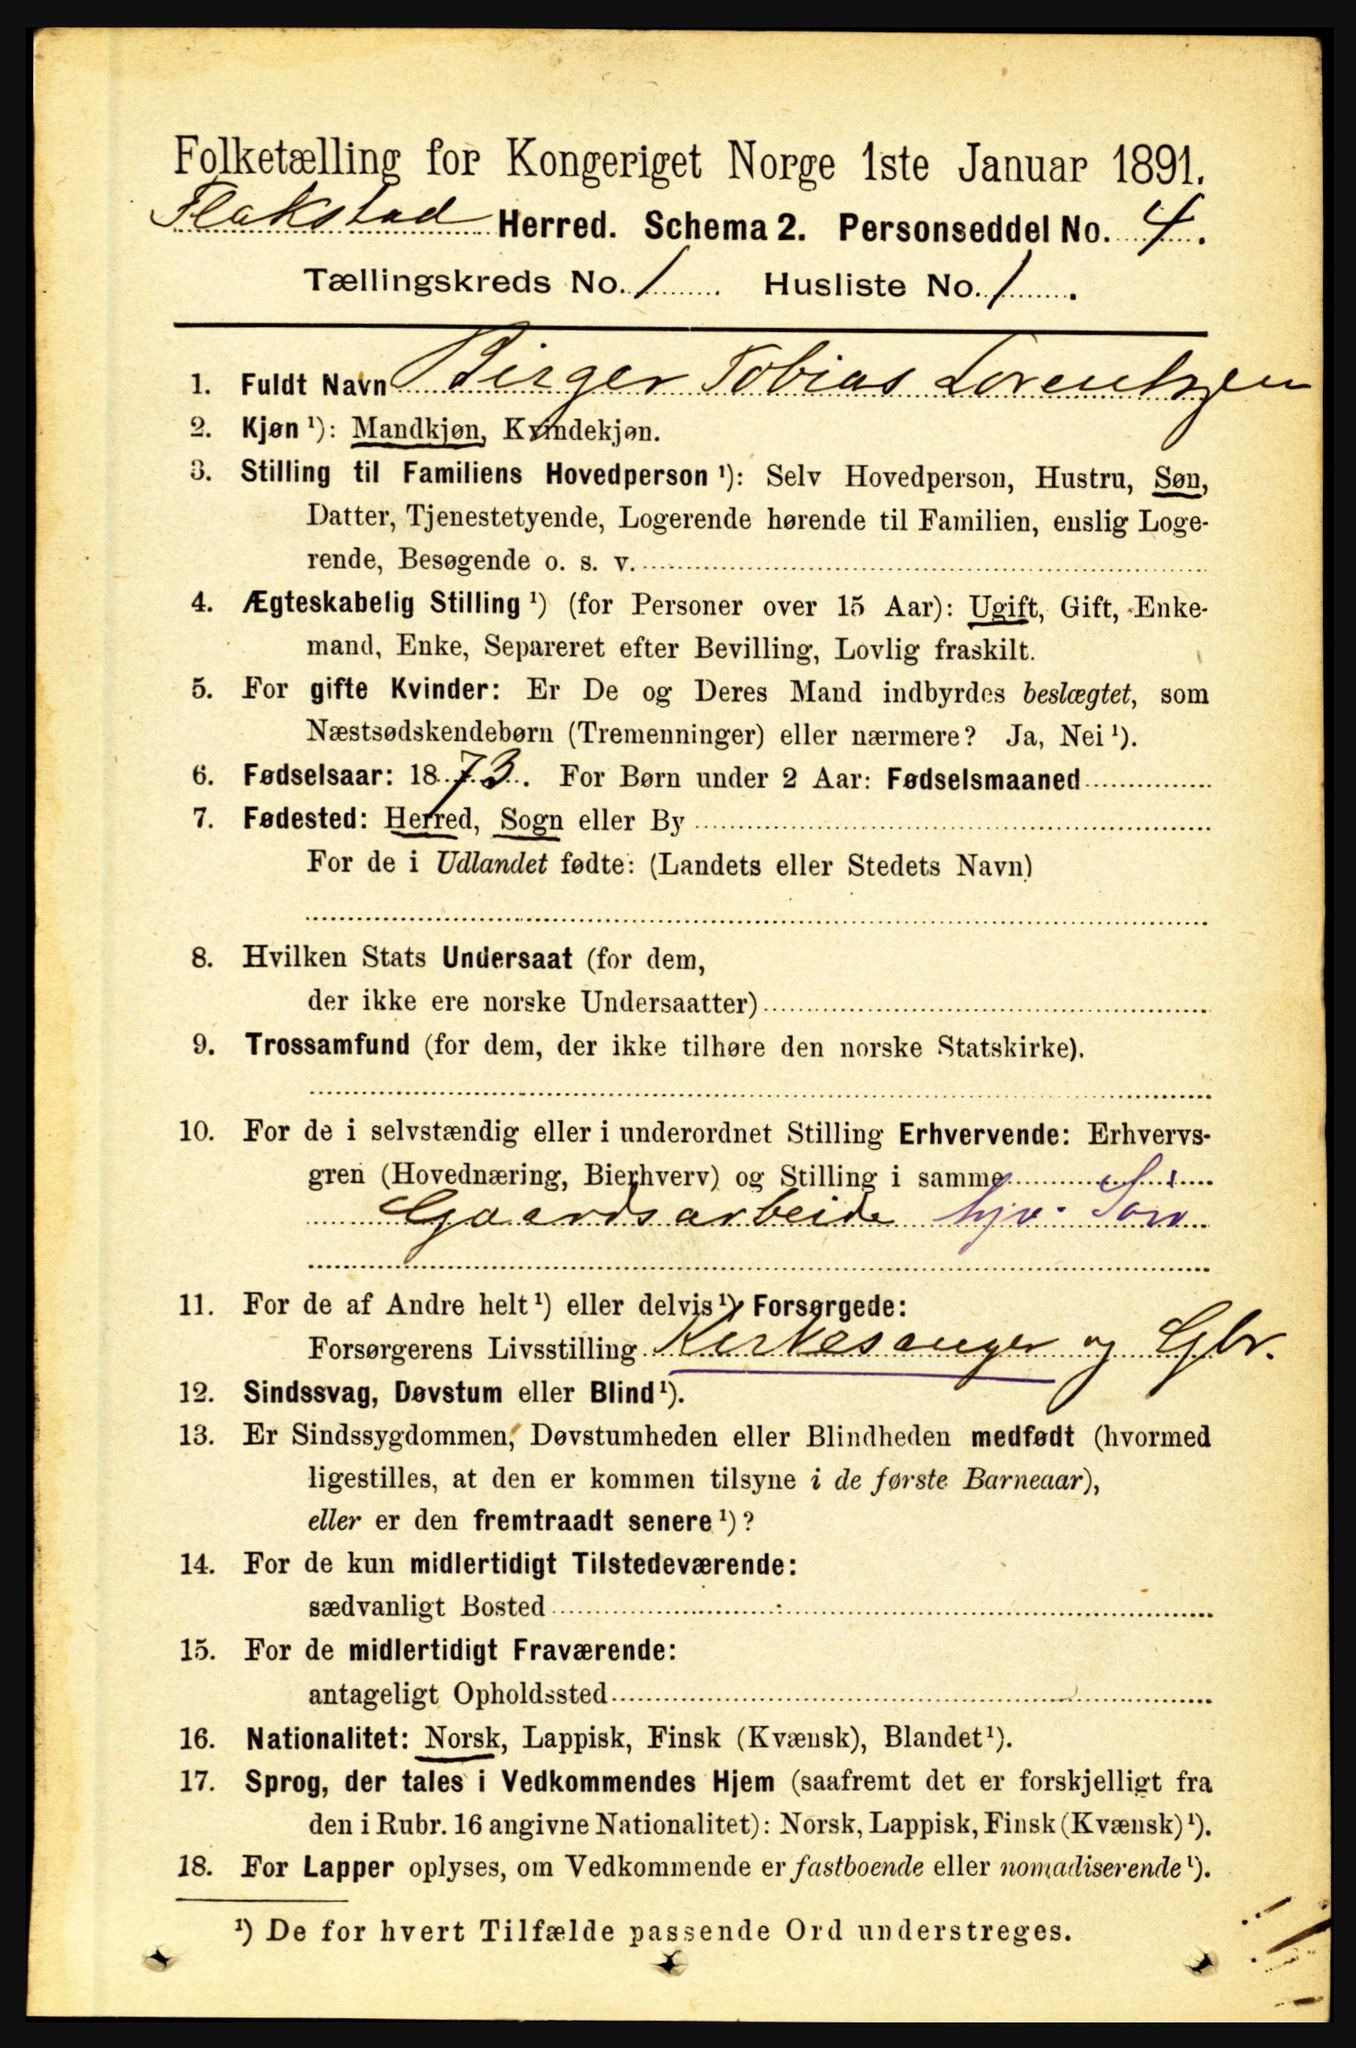 Folketælling for Kongeriget Norge 1ste Januar 1891.
Flakstad Herred. Schema 2. Personseddel No. 4.
Tællingskreds No. 1 Husliste No. 1.
1. Fuldt Navn Birger Tobias Lorentzen
2. Kjøn ¹): Mandkjøn, Kvindekjøn.
3. Stilling til Familiens Hovedperson ¹): Selv Hovedperson, Hustru, Søn,
Datter, Tjenestetyende, Logerende hørende til Familien, enslig Loge-
rende, Besøgende o. s. v.
4. Ægteskabelig Stilling ¹) (for Personer over 15 Aar): Ugift, Gift, Enke-
mand, Enke, Separeret efter Bevilling, Lovlig fraskilt.
5. For gifte Kvinder: Er De og Deres Mand indbyrdes beslægtet, som
Næstsødskendebørn (Tremenninger) eller nærmere? Ja, Nei ¹).
6. Fødselsaar: 1873. For Børn under 2 Aar: Fødselsmaaned
7. Fødested: Herred, Sogn eller By
For de i Udlandet fødte: (Landets eller Stedets Navn)
8. Hvilken Stats Undersaat (for dem,
der ikke ere norske Undersaatter)
9. Trossamfund (for dem, der ikke tilhøre den norske Statskirke).
10. For de i selvstændig eller i underordnet Stilling Erhvervende: Erhvervs-
gren (Hovednæring, Bierhverv) og Stilling i samme
Gaardsarbeide hjv. Søn
11. For de af Andre helt ¹) eller delvis ¹) Forsørgede:
Forsørgerens Livsstilling Kirkesanger og Gbr.
12. Sindssvag, Døvstum eller Blind ¹).
13. Er Sindssygdommen, Døvstumheden eller Blindheden medfødt (hvormed
ligestilles, at den er kommen tilsyne i de første Barneaar),
eller er den fremtraadt senere ¹)?
14. For de kun midlertidigt Tilstedeværende:
sædvanligt Bosted
15. For de midlertidigt Fraværende:
antageligt Opholdssted
16. Nationalitet: Norsk, Lappisk, Finsk (Kvænsk), Blandet ¹).
17. Sprog, der tales i Vedkommendes Hjem (saafremt det er forskjelligt fra
den i Rubr. 16 angivne Nationalitet): Norsk, Lappisk, Finsk (Kvænsk) ¹).
18. For Lapper oplyses, om Vedkommende er fastboende eller nomadiserende ¹).
¹) De for hvert Tilfælde passende Ord understreges.